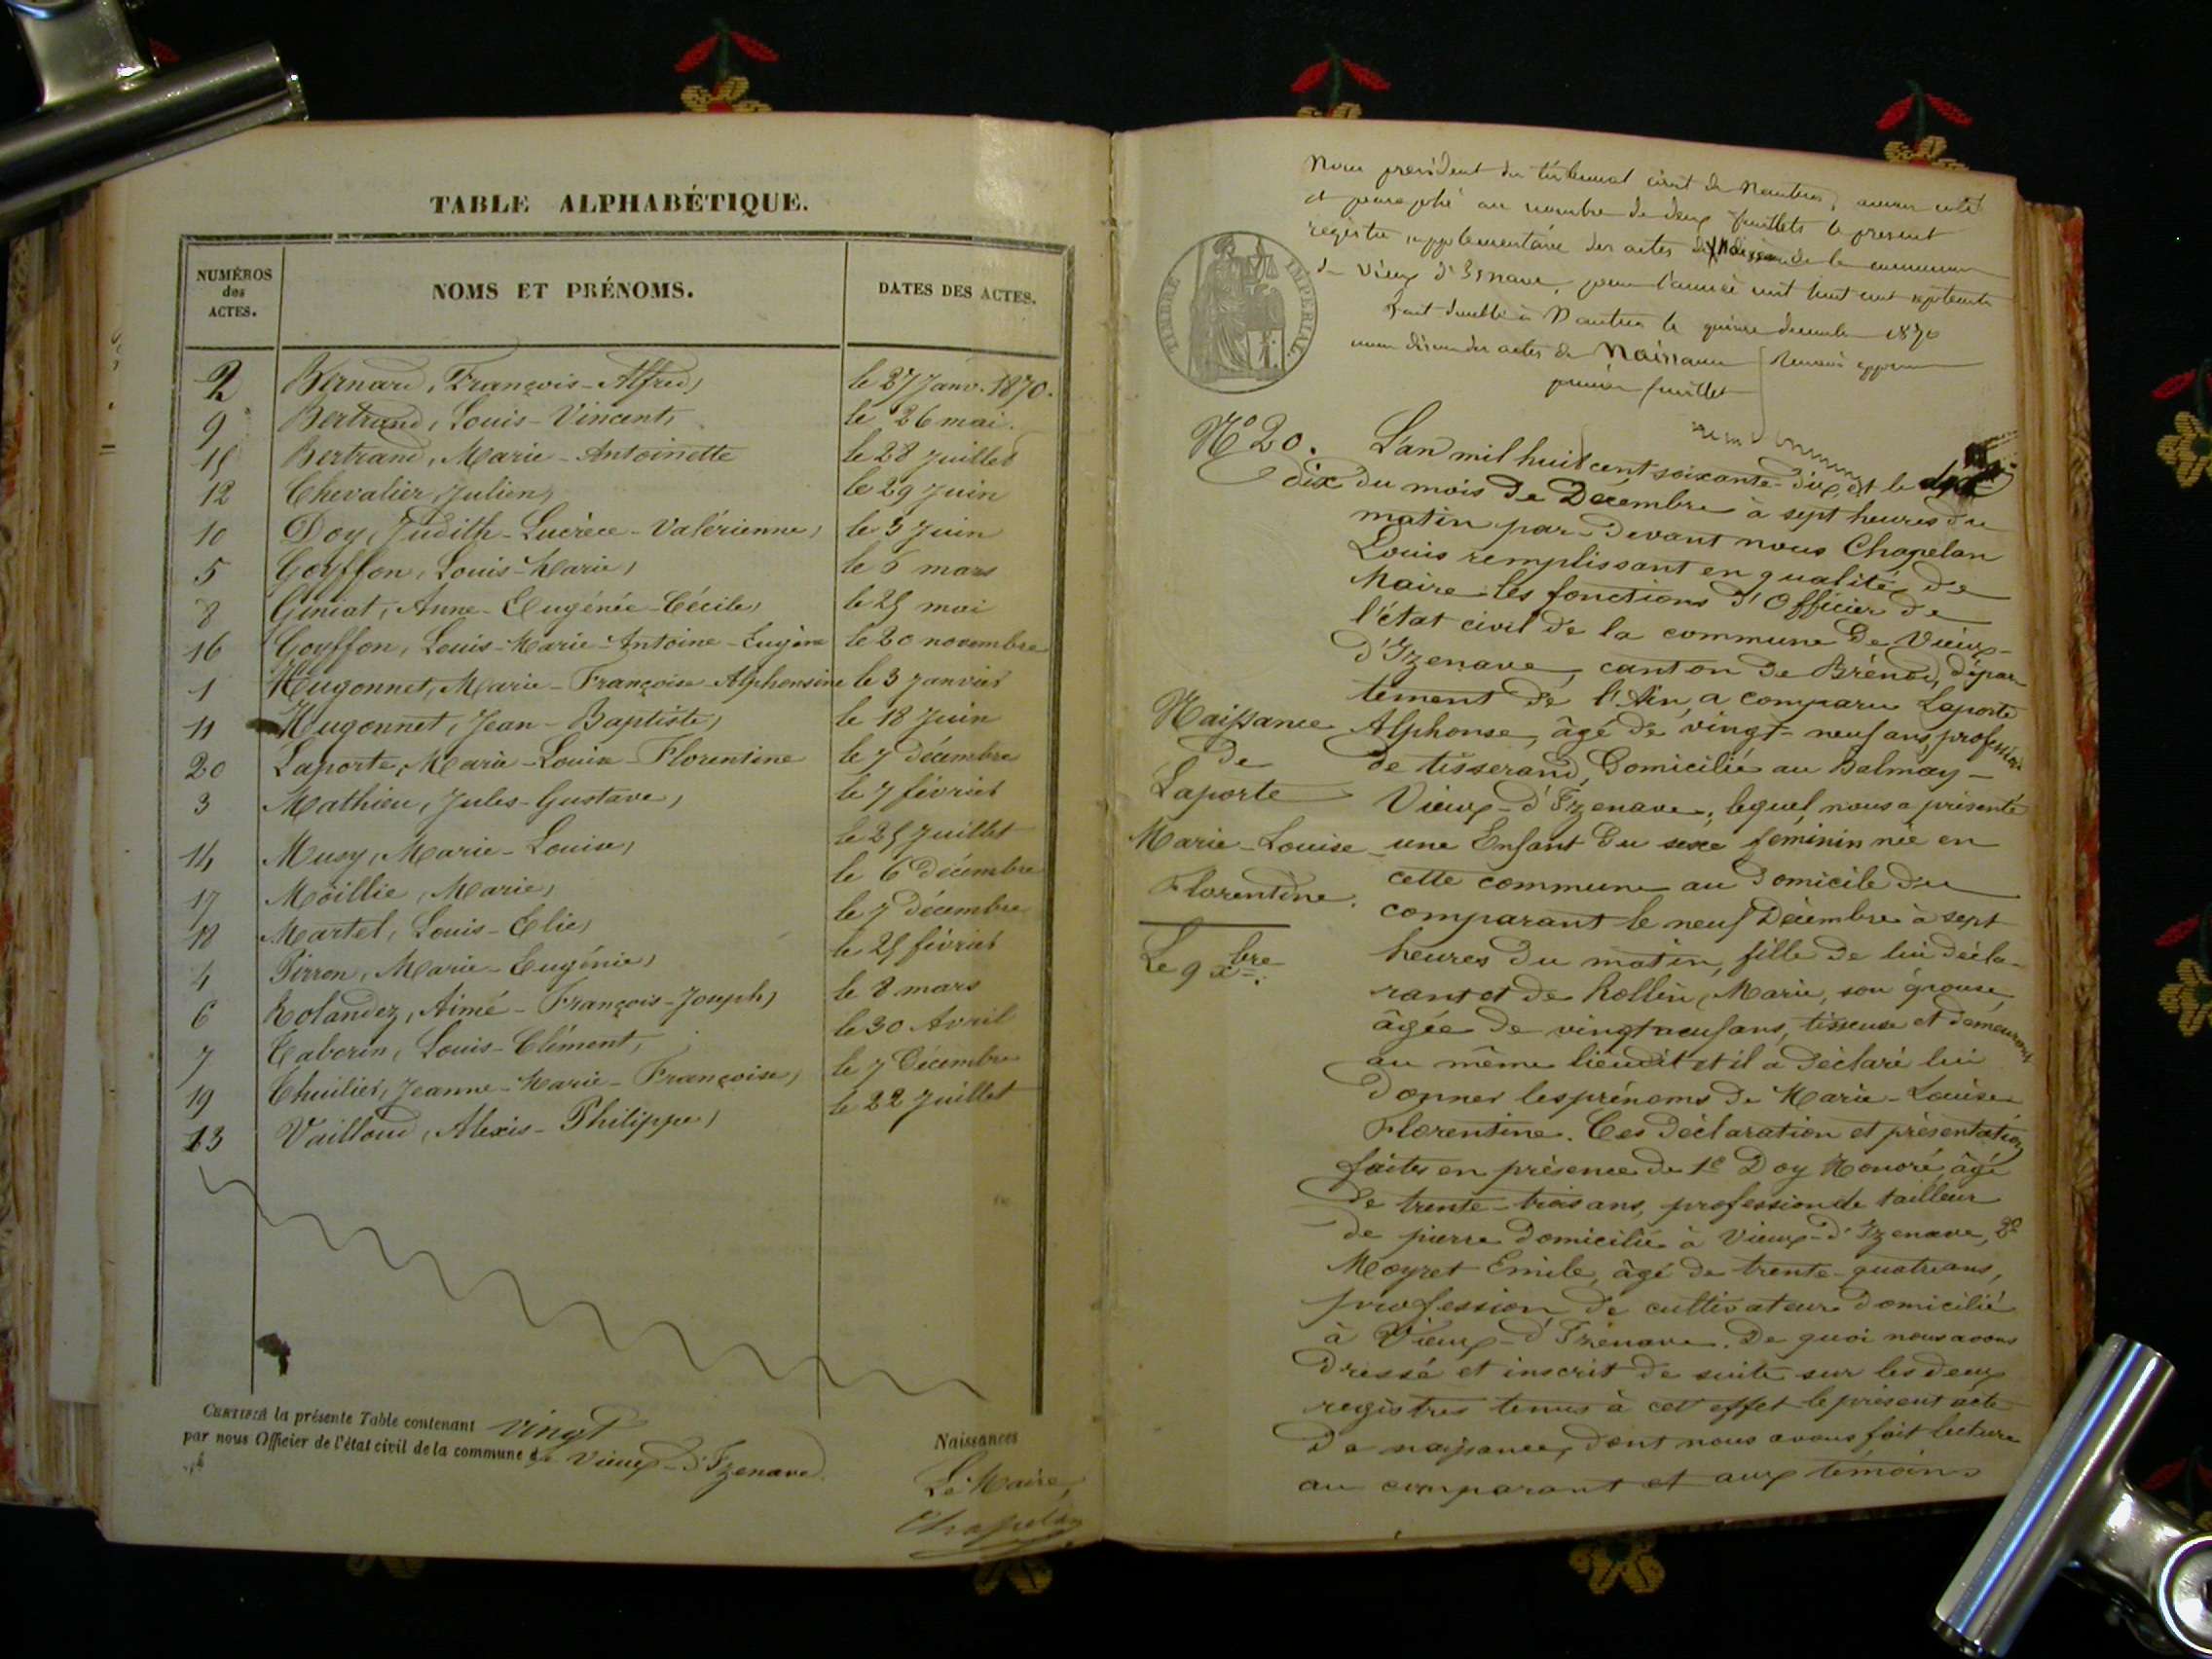 TABLE ALPHABÉTIQUE.
NUMÉROS
des
ACTES.
NOMS ET PRÉNOMS.
DATES DES ACTES.
2 Bernard, François-Alfred, le 27 Janv. 1870.
9 Bertrand, Louis-Vincent, le 26 mai.
15 Bertrand, Marie-Antoinette le 28 Juillet
12 Chevalier, Julien, le 29 Juin
10 Doy, Judith-Lucrèce-Valérienne, le 3 Juin
5 Goyffon, Louis-Marie, le 6 mars
8 Géniat, Anne-Eugénée-Cécile, le 25 mai
16 Goyffon, Louis-Marie-Antoine-Eugène le 20 novembre
1 Hugonnet, Marie-Françoise-Alphonsine le 3 janvier
11 Hugonnet, Jean-Baptiste, le 18 Juin
20 Laporte, Marie-Louise Florentine le 7 décembre
3 Mathieu, Jules-Gustave, le 7 février
14 Musy, Marie-Louise, le 25 Juillet
17 Moillie, Marie, le 6 décembre
18 Martel, Louis-Elie, le 7 décembre
4 Pirron, Marie-Eugénie, le 25 février
6 Rolandez, Aimé-François-Joseph, le 8 mars
7 Taborin, Louis-Clément, le 30 Avril
19 Thuilier, Jeanne-Marie-Françoise, le 7 Décembre
13 Vailloud, Alexis-Philippe, le 22 Juillet
CERTIFIÉ la présente Table contenant vingt
Naissances
par nous Officier de l'état civil de la commune de Vieux-d'Izenave.
Le Maire,
Chapelan
Nous président du tribunal civil de Nantua, avons coté
et paraphé au nombre de deux feuillets le présent
registre supplémentaire des actes de la commune
de Vieux d'Izenave, pour l'année mil huit cent soixante
Fait double à Nantua le quinze décembre 1870
des actes de Naissance
premier feuillet
TIMBRE IMPÉRIAL.
N° 20. L'an mil huit cent soixante-dix, et le
dix du mois de Décembre à sept heures du
matin par-devant nous Chapelan
Louis remplissant en qualité de
Maire les fonctions d'Officier de
l'état civil de la commune de Vieux-
d'Izenave, canton de Brénod, dépar
tement de l'Ain, a comparu Laporte
Naissance
de
Laporte
Marie-Louise
Florentine.
Le 9 xbre.
Alphonse, âgé de vingt-neuf ans, profession
de tisserand, domicilié au Balmay-
Vieux-d'Izenave, lequel nous a présenté
une Enfant du sexe féminin née en
cette commune au domicile du
comparant le neuf Décembre à sept
heures du matin, fille de lui décla-
rant et de Rollin, Marie, son épouse,
âgée de vingt neuf ans, tisseuse et demeurant
au même lieudit et il a déclaré lui
donner les prénoms de Marie-Louise
Florentine. Ces déclaration et présentation
faites en présence de 1° Doy Honoré, âgé
de trente-trois ans, profession de tailleur
de pierre domicilié à Vieux-d'Izenave, 2°
Moyret Emile, âgé de trente-quatre ans,
profession de cultivateur domicilié
à Vieux-d'Izenave. De quoi nous avons
dressé et inscrit de suite sur les deux
registres tenus à cet effet le présent acte
de naissance, dont nous avons fait lecture
au comparant et aux témoins